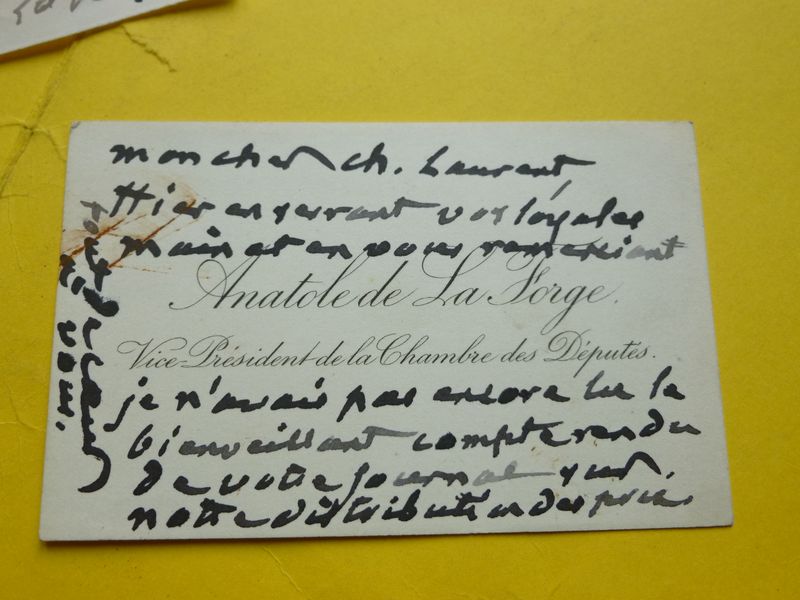 mon cher ch. Laurent
Hier en serrant vos loyales
mains et en vous remerciant
Anatole de La Forge.
Vice-Président de la Chambre des Députés.
je n'avais pas encore lu le
bienveillant compte rendu
de votre journal sur
notre distribution des prix.
tout
à vous.